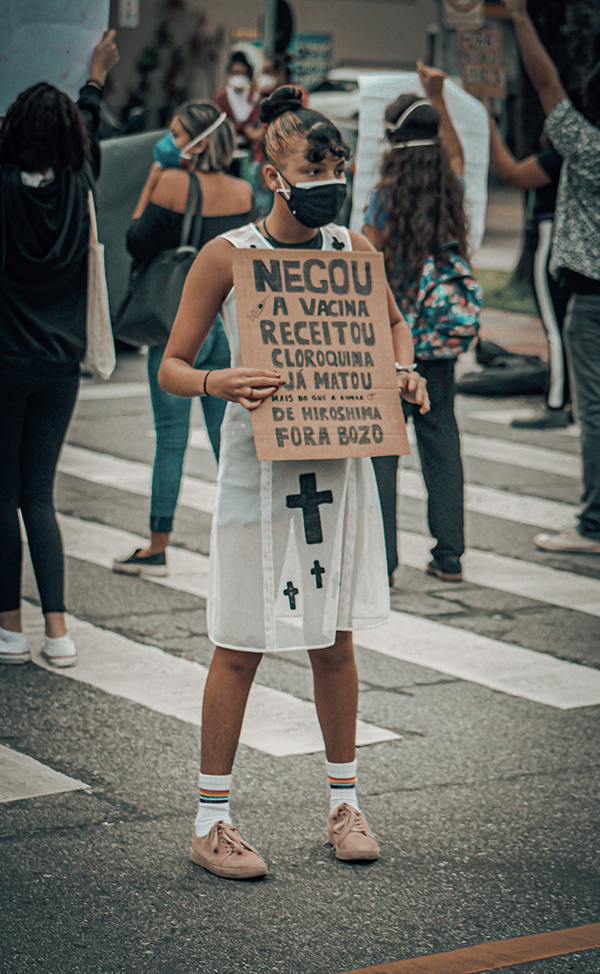 NEGOU
A VACINA
RECEITOU
CLOROQUINA
JÁ MATOU
MAIS DO QUE A BOMBA
DE HIROSHIMA
FORA BOZO